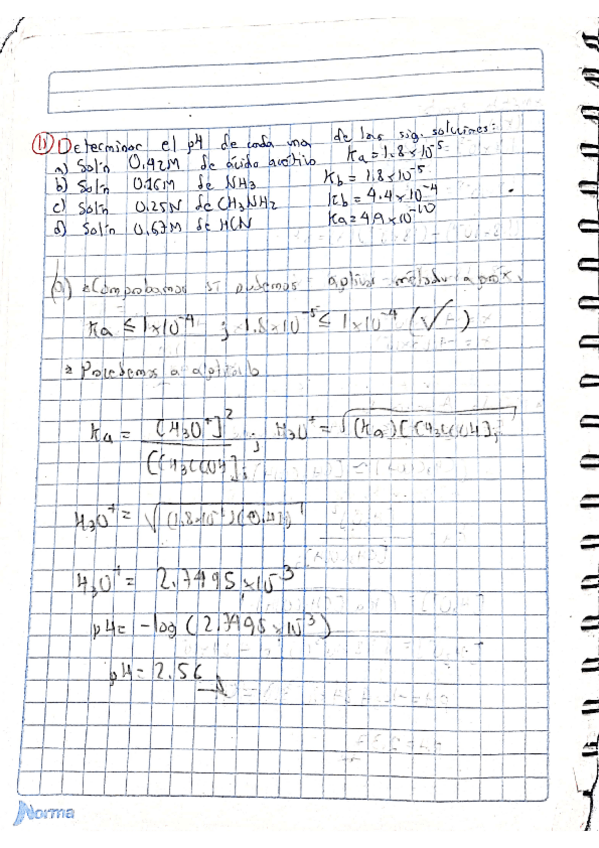 1) Determinar el pH de cada una de las sig. soluciones:
a) Soln 0.42M de ácido acético Ka = 1.8x10^-5
b) Soln 0.26M de NH3 Kb = 1.8x10^-5
c) Soln 0.25N de CH3NH2 Kb = 4.4x10^-4
d) Soln 0.67M de HCN Ka = 4.9x10^-10
a) Comprobamos si podemos aplicar método aprox.
Ka ≤ 1x10^-4 ; 1.8x10^-5 ≤ 1x10^-4 (✓)
Procedemos a aplicarlo
Ka = [H3O+]^2 / [CH3COOH]i ; H3O+ = √(Ka)[CH3COOH]i
H3O+ = √(1.8x10^-5)(0.42)
H3O+ = 2.7495x10^-3
pH = -log(2.7495x10^-3)
pH = 2.56
Norma